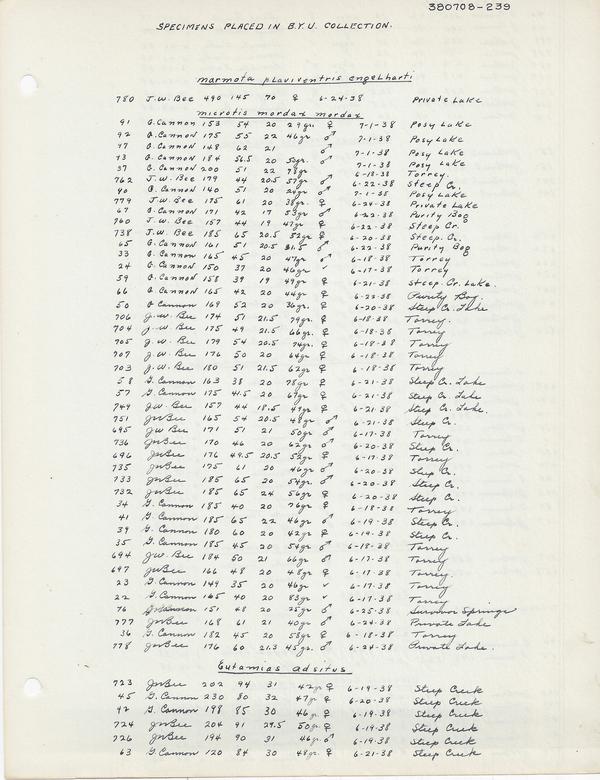 380708-239
SPECIMENS PLACED IN B.Y.U. COLLECTION.
marmota flaviventris engelharti
780 J.W. Bee 490 145 70 ♀ 6-24-38 Private Lake
microtis mordax mordax
91 G. Cannon 153 54 20 29gr. ♀ 7-1-38 Posy Lake
92 G. Cannon 175 55 22 46gr ♂ 7-1-38 Posy Lake
G. Cannon 148 62 21 ♂ 7-1-38 Posy Lake
93 G. Cannon 184 56.5 20 ♂ 7-1-38 Posy Lake
37 G. Cannon 200 51 22 78gr 6-18-38 Torrey.
762 J.W. Bee 179 44 20.5 57gr ♂ 6-22-38 Steep Cr.
90 G. Cannon 140 51 20 ♂ 7-1-38 Posy Lake
779 J.W. Bee 175 61 20 38gr. ♀ 6-24-38 Private Lake
67 G. Cannon 171 42 17 53gr ♂ 6-22-38 Purity Bog
760 J.W. Bee 157 44 19 47gr ♀ 6-22-38 Steep Cr.
738 J.W. Bee 185 65 20.5 52gr ♀ 6-20-38 Steep. Cr.
65 G. Cannon 161 51 20.5 31.5 ♂ 6-22-38 Purity Bog
33 G. Cannon 165 45 20 47gr ♂ 6-18-38 Torrey
24 G. Cannon 150 37 20 46gr ✓ 6-17-38 Torrey
59 G. Cannon 158 39 19 49gr ♀ 6-21-38 Steep. Cr. Lake.
66 G. Cannon 165 42 20 44gr ♀ 6-22-38 Purity Bog.
50 G. Cannon 169 52 20 36gr. ♀ 6-20-38 Steep Cr. Lake
706 J.W. Bee 174 51 21.5 79gr. ♀ 6-18-38 Torrey.
704 J.W. Bee 175 49 21.5 66gr. ♀ 6-18-38 Torrey
705 J.W. Bee 179 54 20.5 74gr. ♀ 6-18-38 Torrey
707 J.W. Bee 176 50 20 64gr ♀ 6-18-38 Torrey
703 J.W. Bee 180 51 21.5 62gr ♀ 6-18-38 Torrey
58 G. Cannon 163 38 20 78gr ♀ 6-21-38 Steep Cr. Lake
57 G. Cannon 175 41.5 20 67gr ♀ 6-21-38 Steep Cr. Lake
749 J.W. Bee 157 44 18.5 49gr ♀ 6-21-38 Steep Cr. Lake.
751 JWBee 165 54 20.5 48gr ♂ 6-21-38 Steep Cr.
695 J.W Bee 171 51 21 50gr ♂ 6-17-38 Torrey
736 JWBee 170 46 20 62gr ♂ 6-20-38 Steep Cr.
696 JWBee 176 49.5 20.5 52gr ♀ 6-17-38 Torrey
735 JWBee 175 61 20 46gr ♂ 6-20-38 Steep Cr.
733 JWBee 185 65 20 54gr. ♂ 6-20-38 Steep Cr.
732 JWBee 185 65 24 56gr ♀ 6-20-38 Steep Cr.
34 G. Cannon 185 40 20 76gr ♀ 6-18-38 Torrey
41 G. Cannon 185 65 22 46gr ♂ 6-19-38 Steep Cr.
39 G. Cannon 180 60 20 42gr ♀ 6-19-38 Steep Cr.
35 G. Cannon 185 45 20 54gr ♂ 6-18-38 Torrey
694 J.W. Bee 184 50 21 66gr ♂ 6-17-38 Torrey.
697 JWBee 166 48 20 48gr ♀ 6-17-38 Torrey.
23 G. Cannon 149 35 20 46gr ✓ 6-17-38 Torrey
22 G. Cannon 165 40 20 83gr ✓ 6-17-38 Torrey
76 151 48 20 25gr ♂ 6-25-38 Survivor Springs
777 JWBee 168 61 21 40gr ♂ 6-24-38 Private Lake
36 G. Cannon 182 45 20 58gr ♀ 6-18-38 Torrey
778 JWBee 176 60 21.3 45gr. ♂ 6-24-38 Private Lake.
Eutamias adsitus
723 JWBee 202 94 31 42gr ♀ 6-19-38 Steep Creek
45 G. Cannon 230 80 32 47gr ♀ 6-20-38 Steep Creek
42 G. Cannon 198 85 30 46gr ♀ 6-19-38 Steep Creek
724 JWBee 204 91 29.5 50gr ♀ 6-19-38 Steep Creek
726 JWBee 194 90 31 46gr ♂ 6-19-38 Steep Creek
63 G. Cannon 120 84 30 48gr. ♀ 6-21-38 Steep Creek